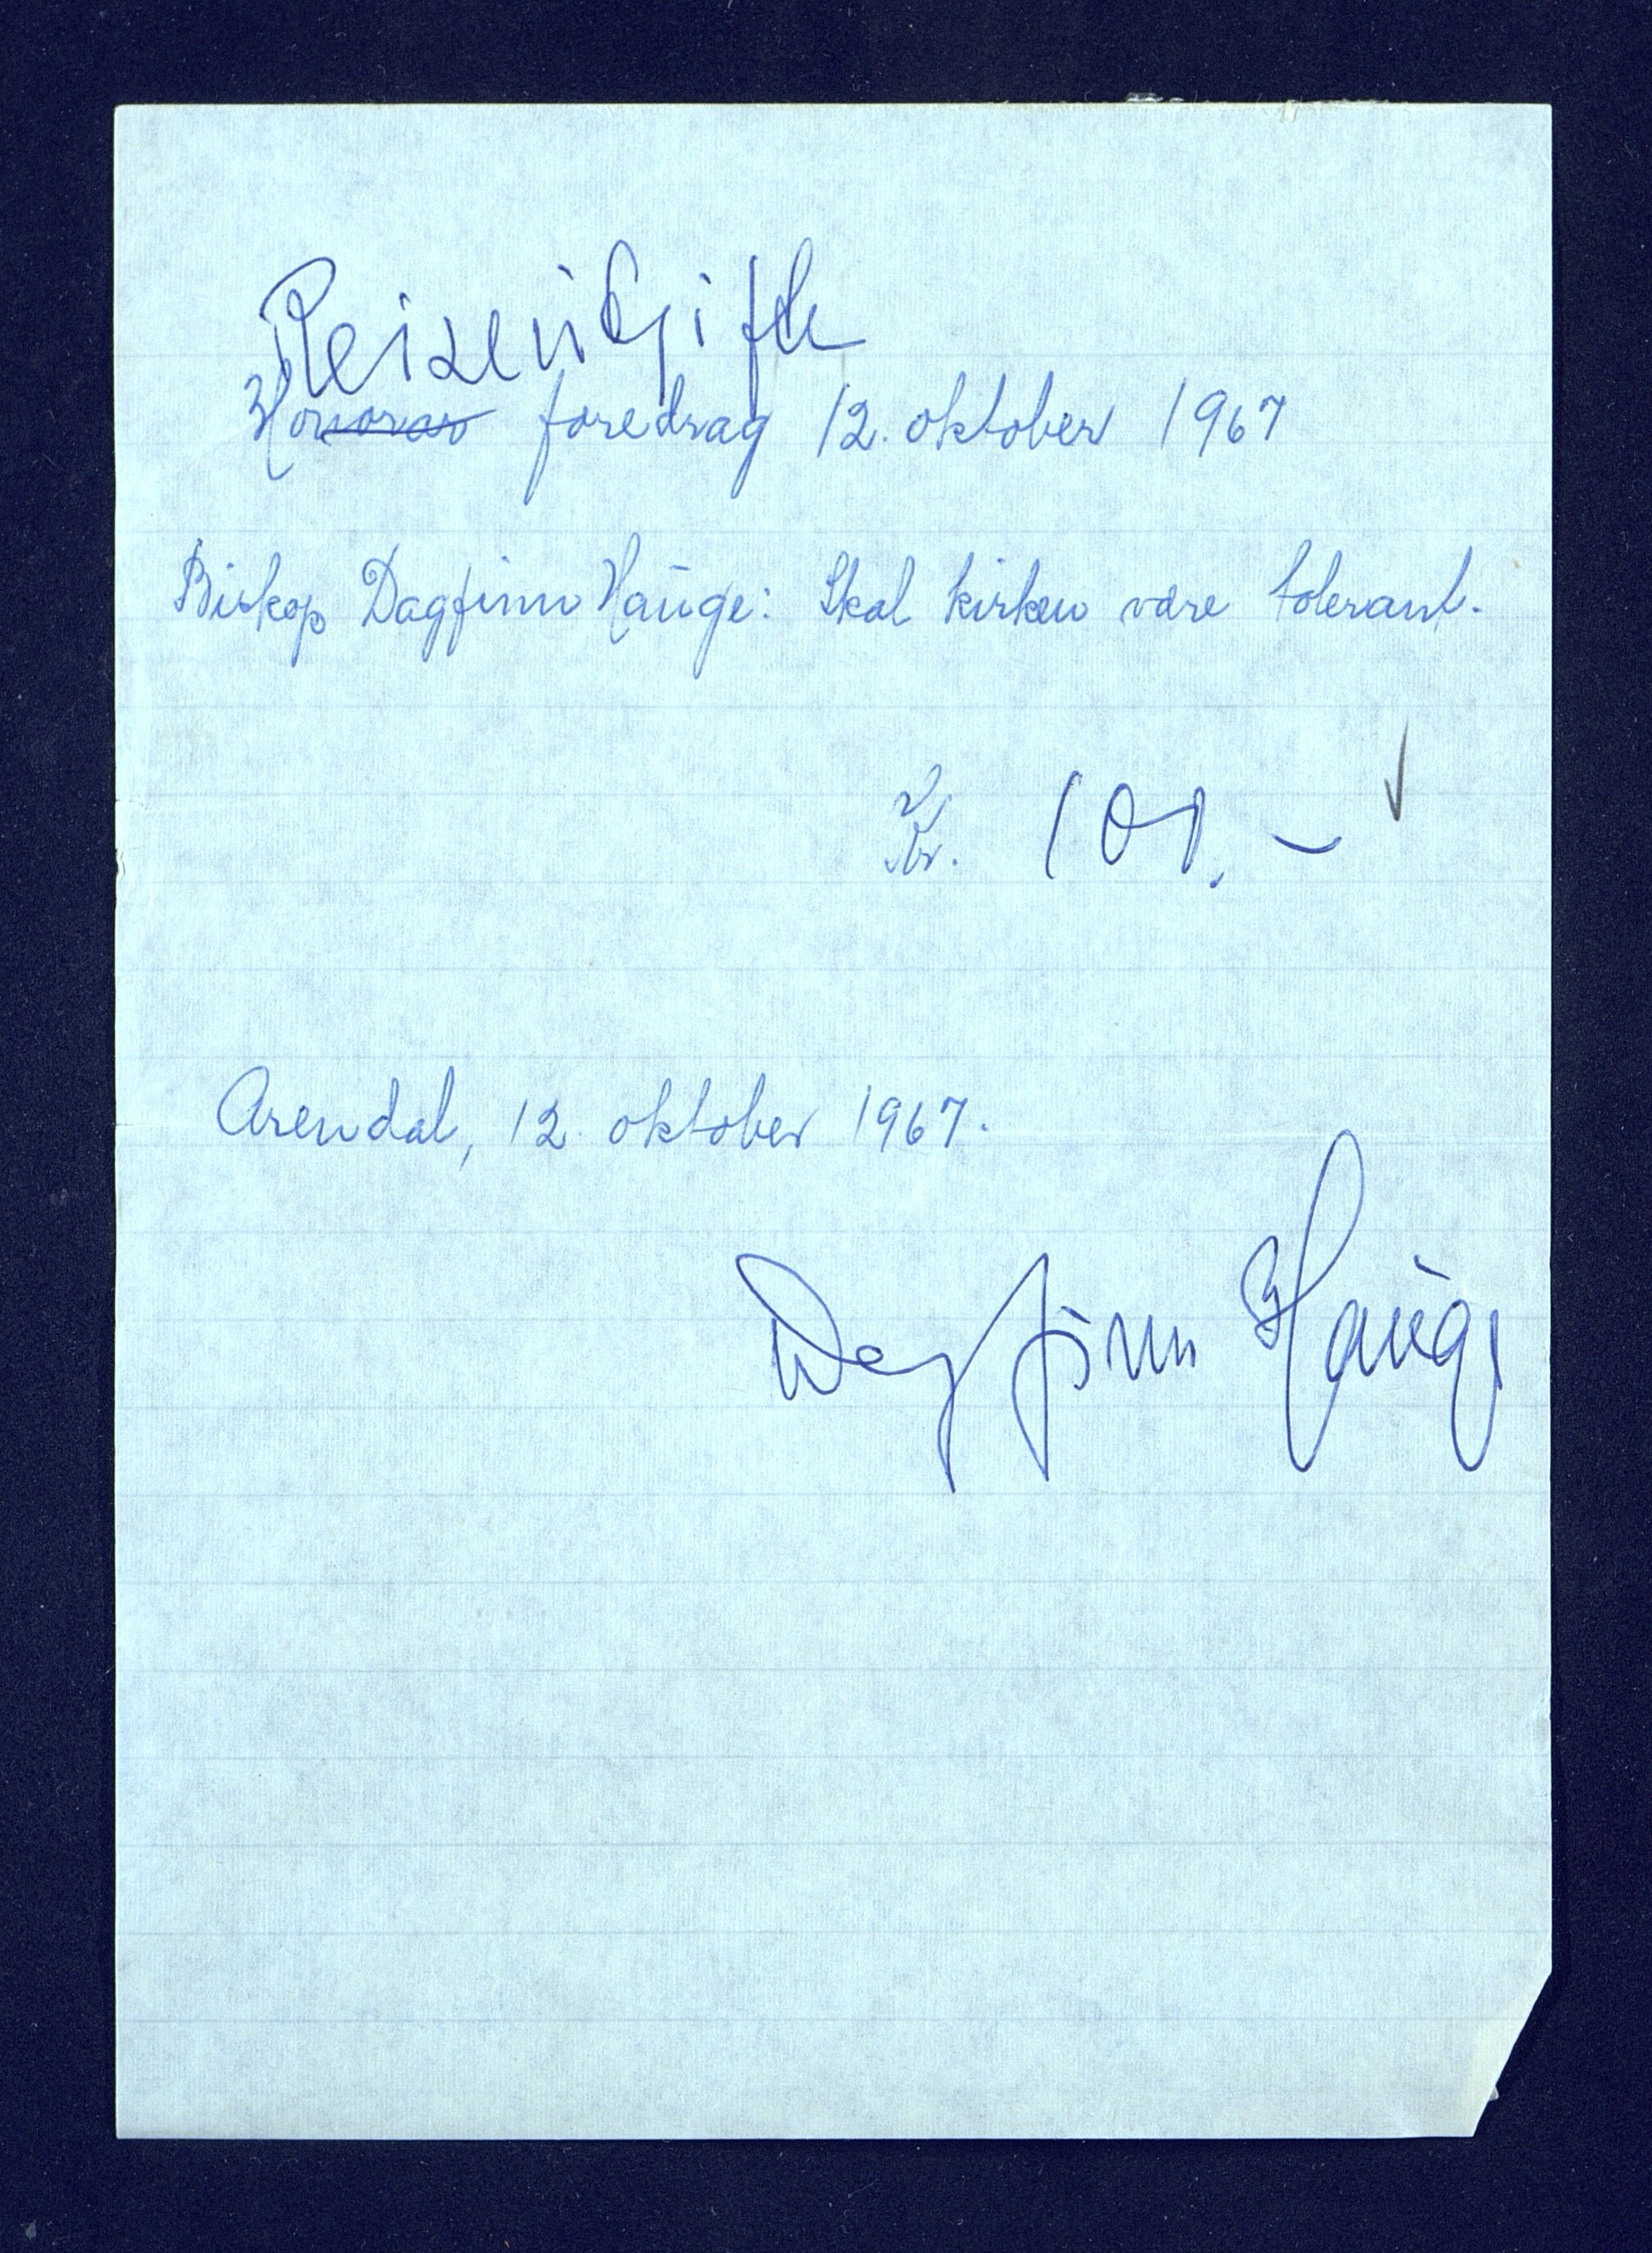 Reiseutgifter
Honorar foredrag 12. oktober 1967
Biskop Dagfinn Hauge: Skal kirken være tolerant.
Kr. 100.-
Arendal, 12. oktober 1967.
Dagfinn Hauge